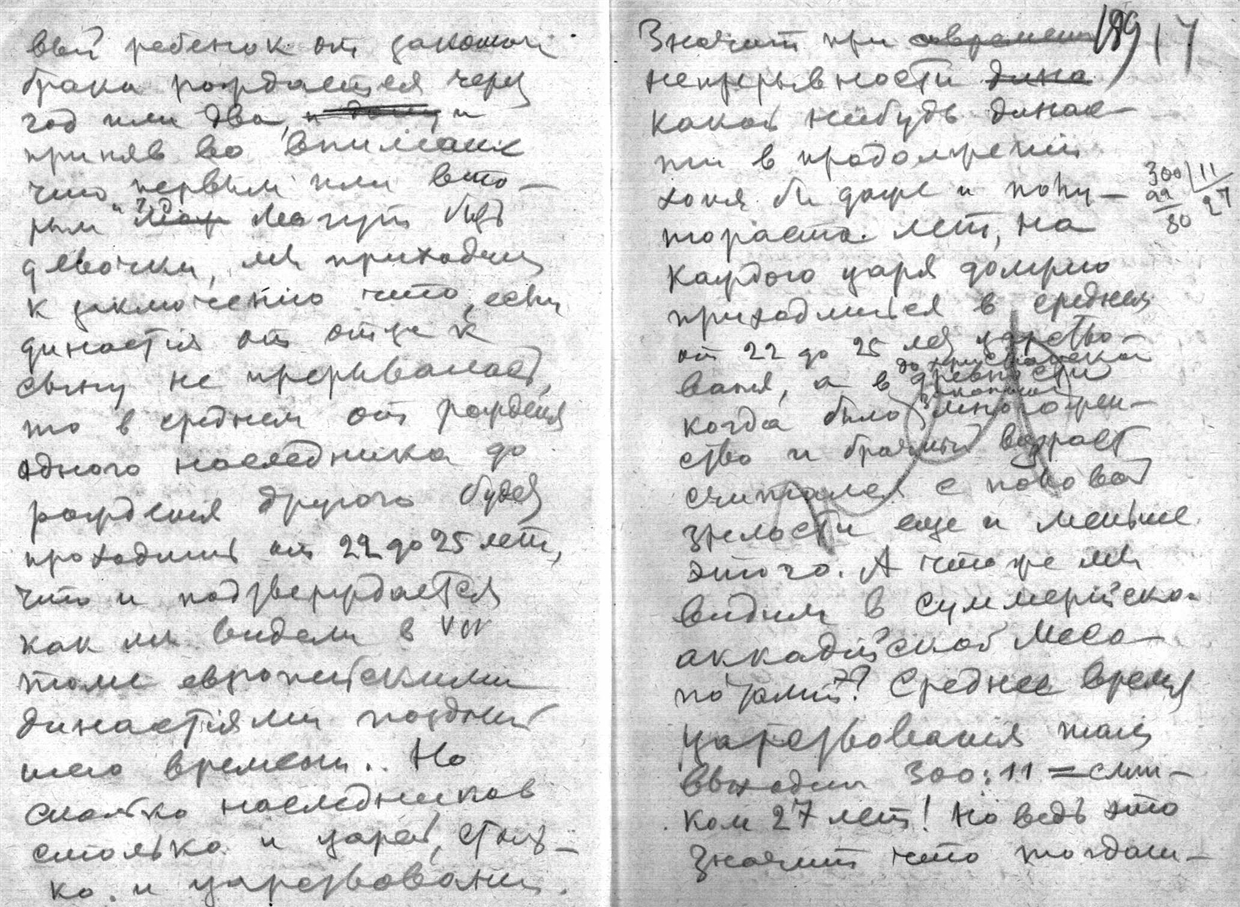 вый ребенок от законного
брака рождается через
год или два, и
приняв во внимание
что первым или вто-
рым могут быть
девочки, мы приходим
к заключению что, если
династия от отца к
сыну не прерывалась,
то в среднем от рождения
одного наследника до
рождения другого будет
проходить от 22 до 25 лет,
что и подтверждается
как мы видели в VIII
томе европейскими
династиями поздней-
шего времени.. Но
сколько наследников
столько и царей, столь-
ко и царствований.
189 17
Значит при
непрерывности
какой нибудь динас-
тии в продолжении
хотя бы даже и полу-
тораста лет, на
300 11
22 27
80
каждого царя должно
приходиться в среднем
от 22 до 25 лет царство-
вания, а в древности
когда было многожен-
ство и брачный возраст
считался с половой
зрелости еще и меньше
этого. А что же мы
видим в Суммерийско-
аккадийской Месо-
потамии? Среднее время
царствования там
выходит 300:11 = слиш-
ком 27 лет! Но ведь это
значит что тогдаш-